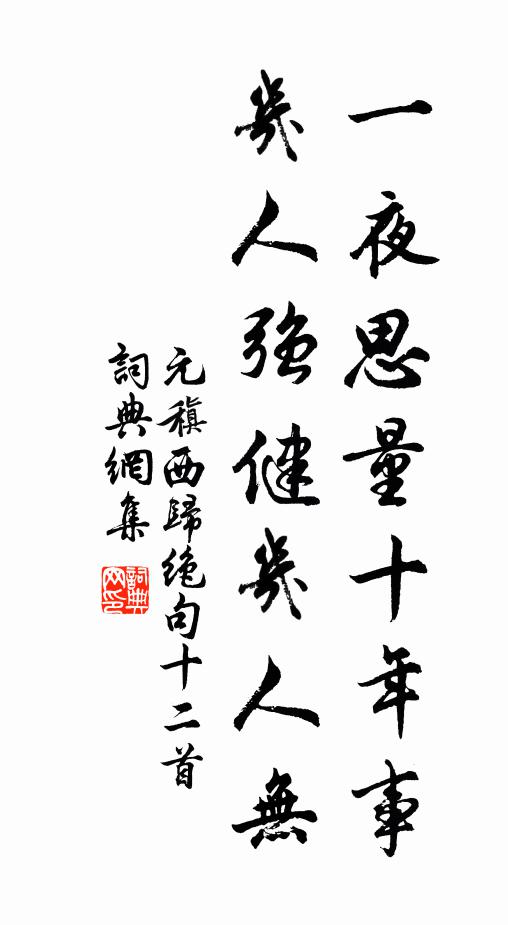 一夜思量十年事
幾人強健幾人無
元稹西歸絶句十二首
詞典網集
詞典網印